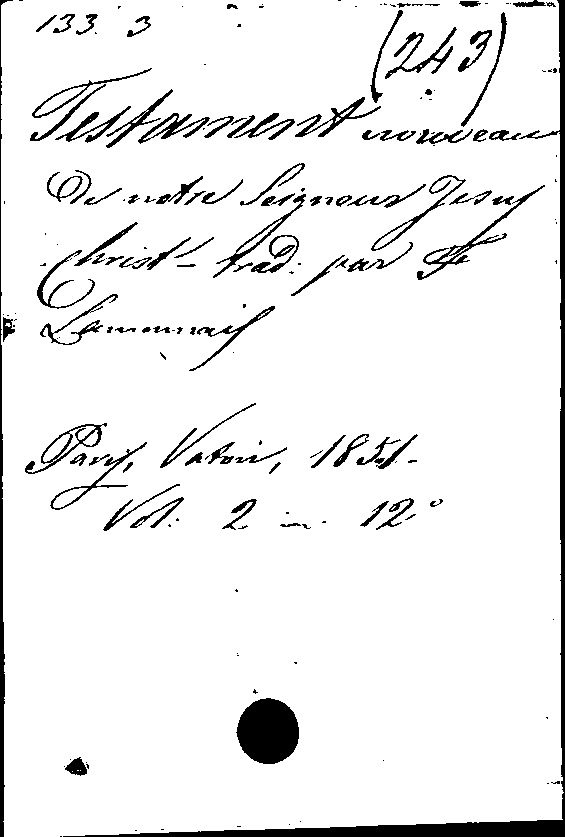 133. 3
(243)
Testament nouveau
de notre Seigneur Jesus
Christ - trad: par Fe
Lamennais
Paris, Vaton, 1851.
Vol: 2 in 12°